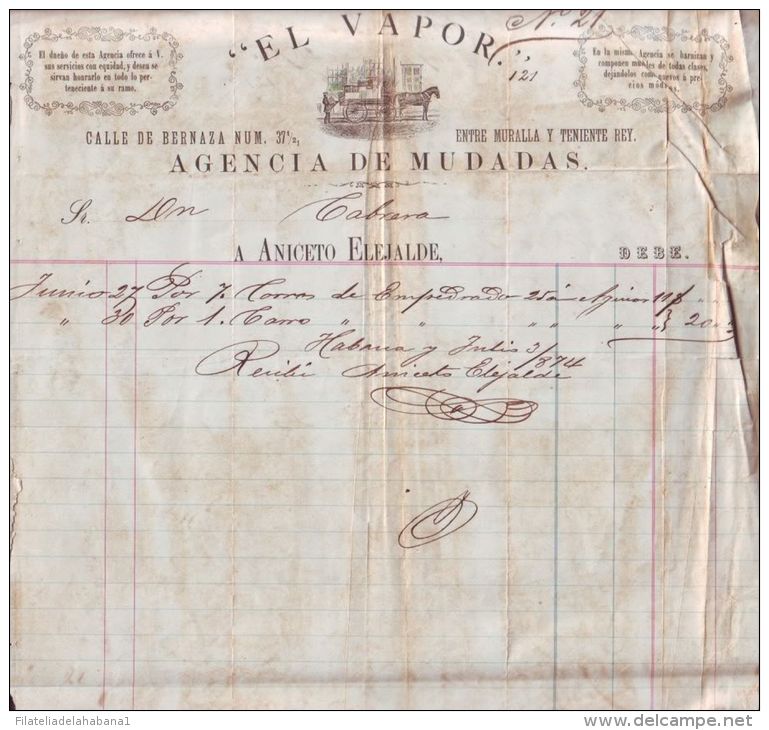 Nº 21
"EL VAPOR."
121
El dueño de esta Agencia ofrece á V.
sus servicios con equidad, y desea se
sirvan honrarlo en todo lo per-
teneciente á su ramo.
En la misma Agencia se barnizan y
componen muebles de todas clases,
dejándolos como nuevos á pre-
cios módicos.
CALLE DE BERNAZA NUM. 37½, ENTRE MURALLA Y TENIENTE REY.
AGENCIA DE MUDADAS.
Sr. Dn Cabrera
A ANICETO ELEJALDE, DEBE.
Junio 27 Por 7 Carros de Empedrado 25 á
" 30 Por 1 Carro " " " " " " 20
Habana y Julio 3/874
Recibí Aniceto Elejalde
Filateliadelahabana1
delcampe.net